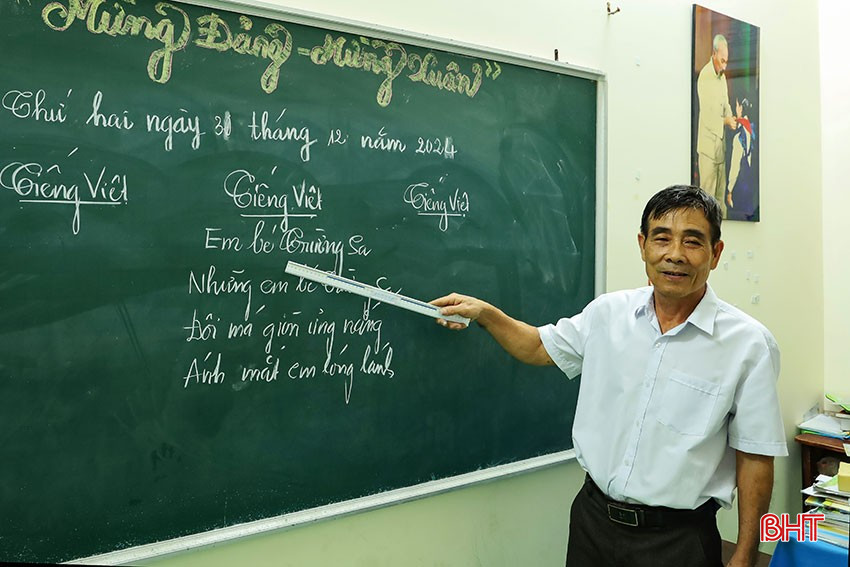 "Mừng Đảng - Mừng Xuân"
Thứ hai ngày 31 tháng 12 năm 2024
Tiếng Việt
Tiếng Việt
Tiếng Việt
Em bé Trường Sa
Những em bé
Đôi má giòn ửng nắng
Ánh mắt em lóng lánh
BHT